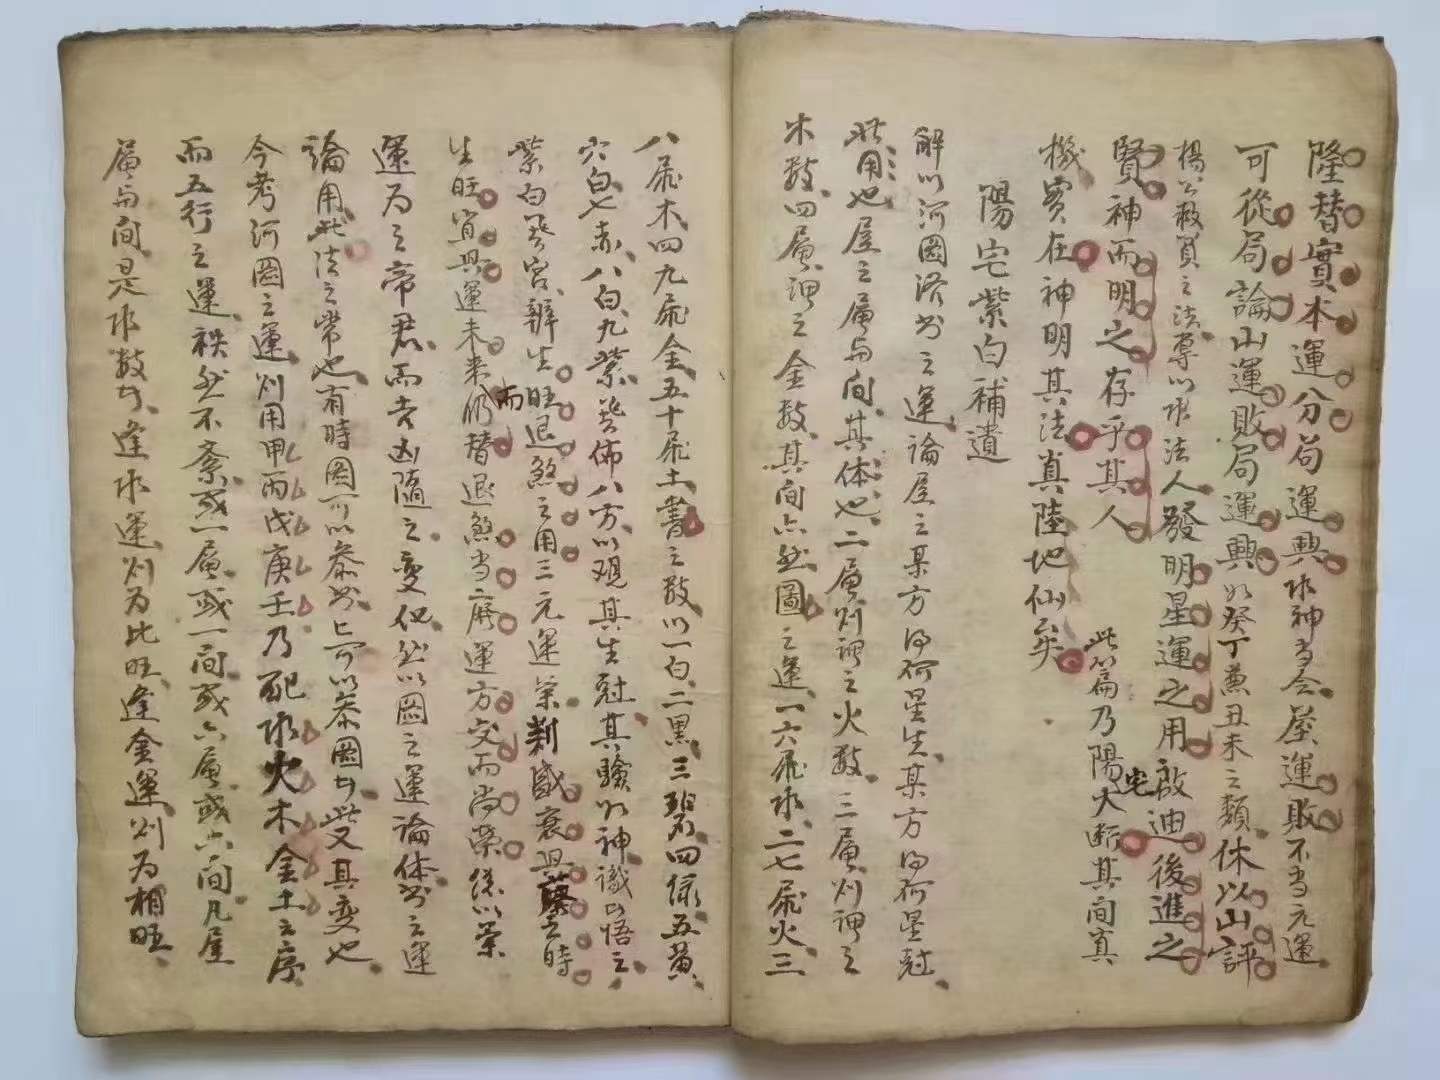 隆替實本運分局運興水神當令屋運敗不當元運
可從局論山運敗局運興如癸丁兼丑未之類休以山評
楊公救貧之法專以水法人發明星運之用啟迪後進之
賢神而明之存乎其人
此篇乃陽宅大斷其間真
機實在神明其法真陸地仙矣
陽宅紫白補遺
解以河圖洛书之運論屋之某方為何星生某方為何星尅
此用也屋之層与间其体也二層则謂之火数三層则謂之
木数四層謂之金数其间亦然圖之運一六屬水二七屬火三
八屬木四九屬金五十屬土書之数以一白二黑三碧四绿五黄
六白七赤八白九紫㪚佈八方以观其生尅其驗以神識以悟之
紫白㪚宫辦生旺退煞之用三元運判盛衰興替之時
生旺宜興運未来而仍替退煞当廃運方交而尚荣總以荣
運為之帝君而吉凶隨之变化然以圖之運論体书之運
論用此法之常也有時圖可以参书亦可以参圖此又其变也
今考河圖之運则用甲丙戊庚壬乃配水火木金土之序
而五行之運秩然不紊或一層或一间或六層或六间凡屋
層与间是水数者逢水運则为比旺逢金運则为相旺